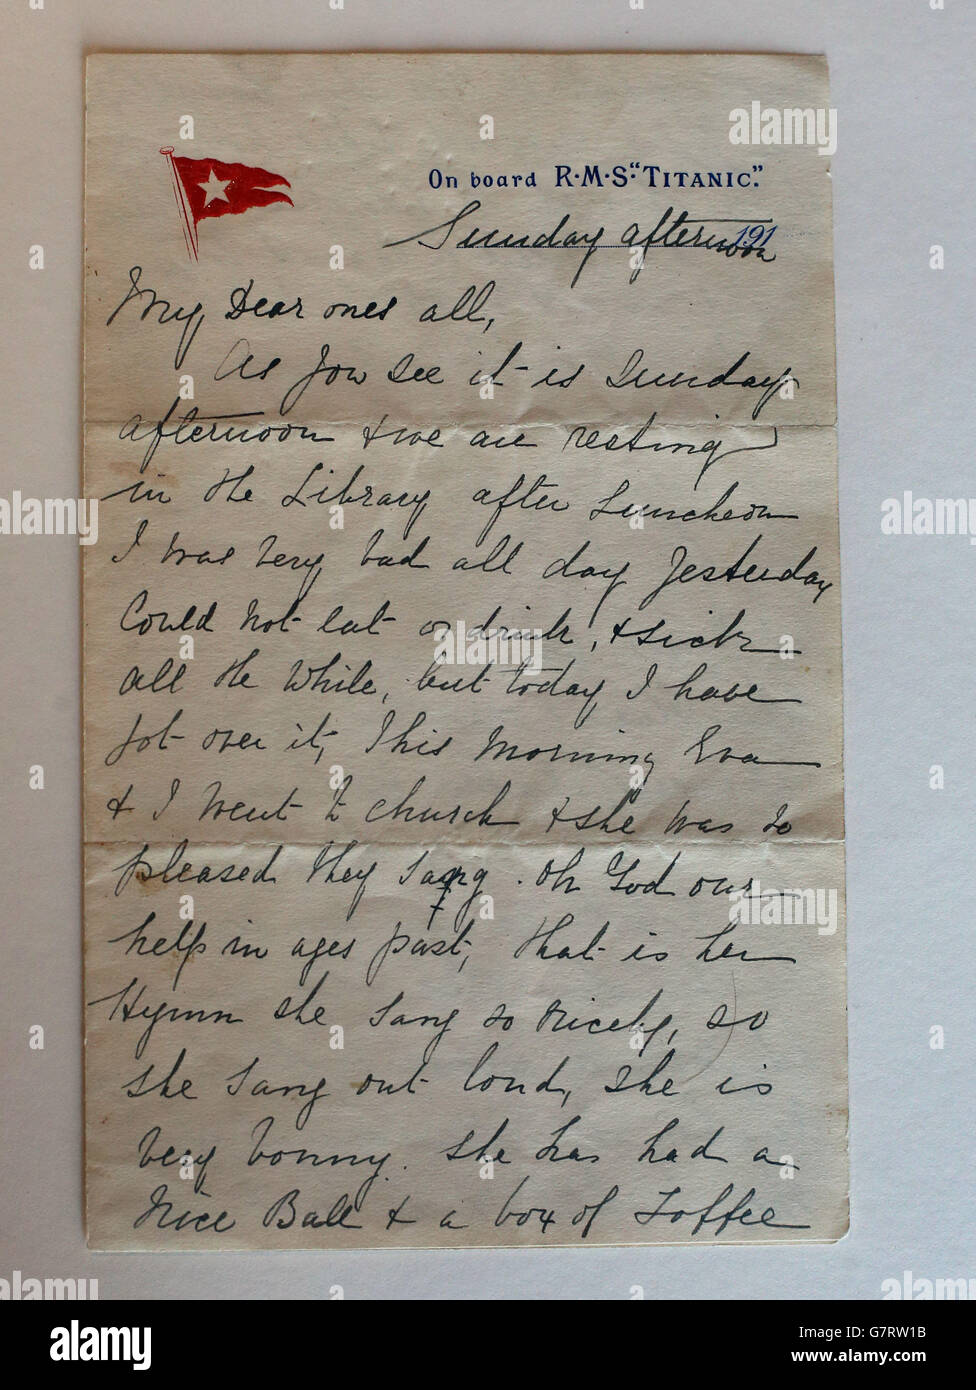 On board R·M·S·"TITANIC."
191
Sunday afternoon
My Dear ones all,
As you see it is Sunday
afternoon & we are resting
in the Library after Luncheon
I was very bad all day Yesterday
Could not eat or drink, & sick
all the While, but today I have
got over it, This Morning Eva
& I went to church & she was so
pleased they sang . Oh God our
help in ages past, that is her
Hymn she sang so Nicely, so
she sang out loud, she is
very bonny. She has had a
Nice Ball & a box of Toffee
alamy
alamy
alamy
alamy
alamy
Image ID: G7RW1B
www.alamy.com